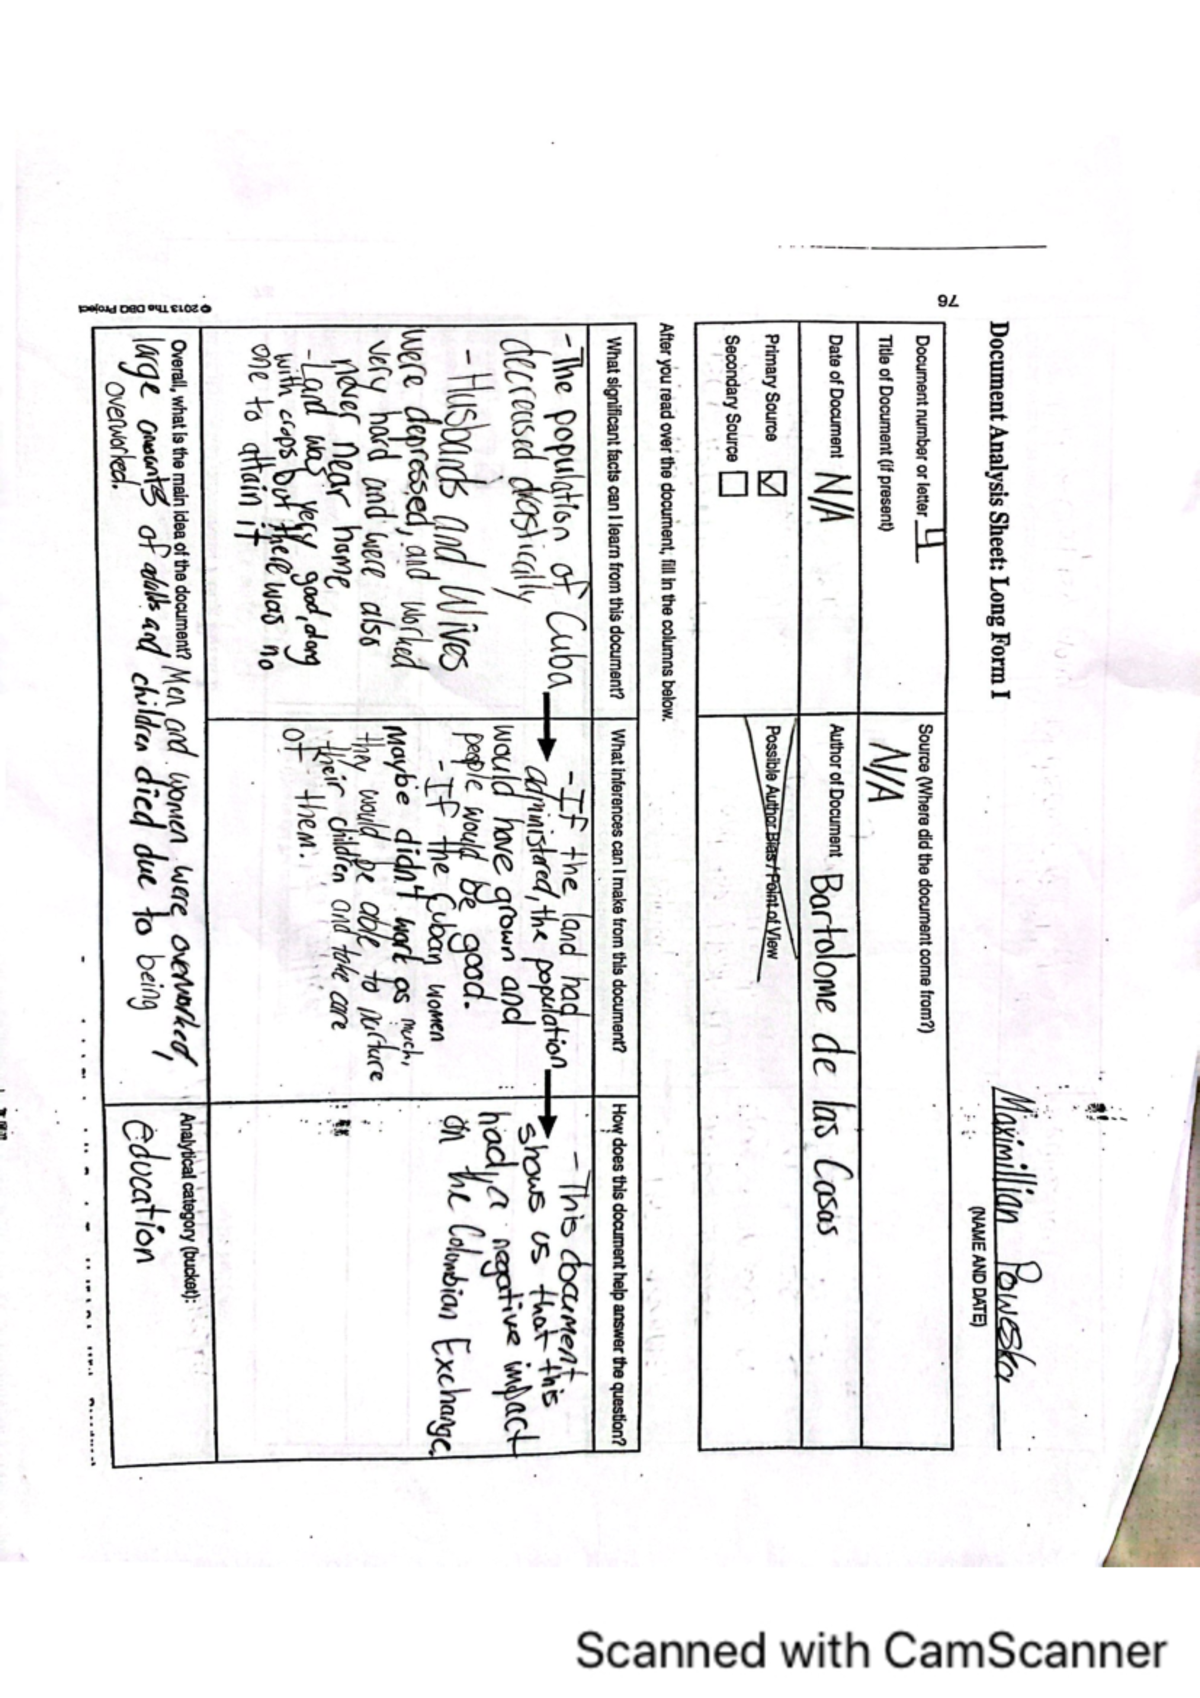 Maximillian Poweska
(NAME AND DATE)
Document Analysis Sheet: Long Form I
Document number or letter 4
Source (Where did the document come from?)
Title of Document (if present)
N/A
Date of Document N/A
Author of Document Bartolome de las Casas
Primary Source ☑
Secondary Source ☐
Possible Author Bias / Point of View
After you read over the document, fill in the columns below.
What significant facts can I learn from this document?
- The population of Cuba
decreased drastically
- Husbands and Wives
were depressed, and worked
very hard and were also
never near home
- Land was very good, dong
with crops but there was no
one to attain it
What inferences can I make from this document?
- If the land had
administered, the population
would have grown and
people would be good.
- If the Cuban women
maybe didn't work as much,
they would be able to nurture
their children and take care
of them.
How does this document help answer the question?
- This document
shows us that this
had a negative impact
on the Colombian Exchange.
Overall, what is the main idea of the document? Men and women were overworked,
large amounts of adults and children died due to being
overworked.
Analytical category (bucket):
education
76
© 2013 The DBQ Project
Scanned with CamScanner